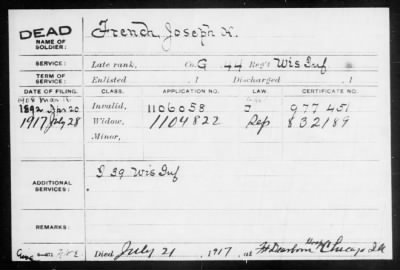 DEAD
NAME OF SOLDIER: French, Joseph N.
SERVICE: Late rank, Co. G 44 Reg't Wis Inf
TERM OF SERVICE: Enlisted , 1 Discharged , 1
DATE OF FILING. CLASS. APPLICATION NO. LAW. CERTIFICATE NO.
1908 Mar
1892 Jan 20 Invalid, 1106058 977451
1917 July 28 Widow, 1104822 Rep 832189
Minor,
ADDITIONAL SERVICES: I 39 Wis Inf
REMARKS:
Died July 21, 1917, at Ft Dearborn Chicago Ill